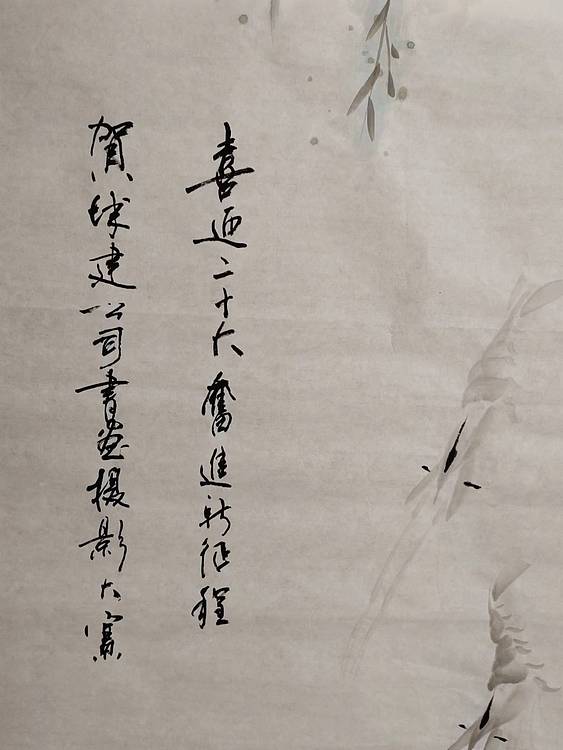 喜迎二十大奮進新征程
賀城建公司書画摄影大賽